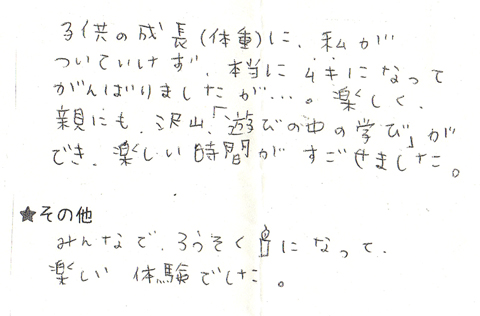 子供の成長(体重)に、私が
ついていけず、本当に ムキになって
がんばりましたが…。楽しく、
親にも、沢山「遊びの中の学び」が
でき、楽しい時間が すごせました。
★その他
みんなで、ろうそく になって、
楽しい 体験でした。